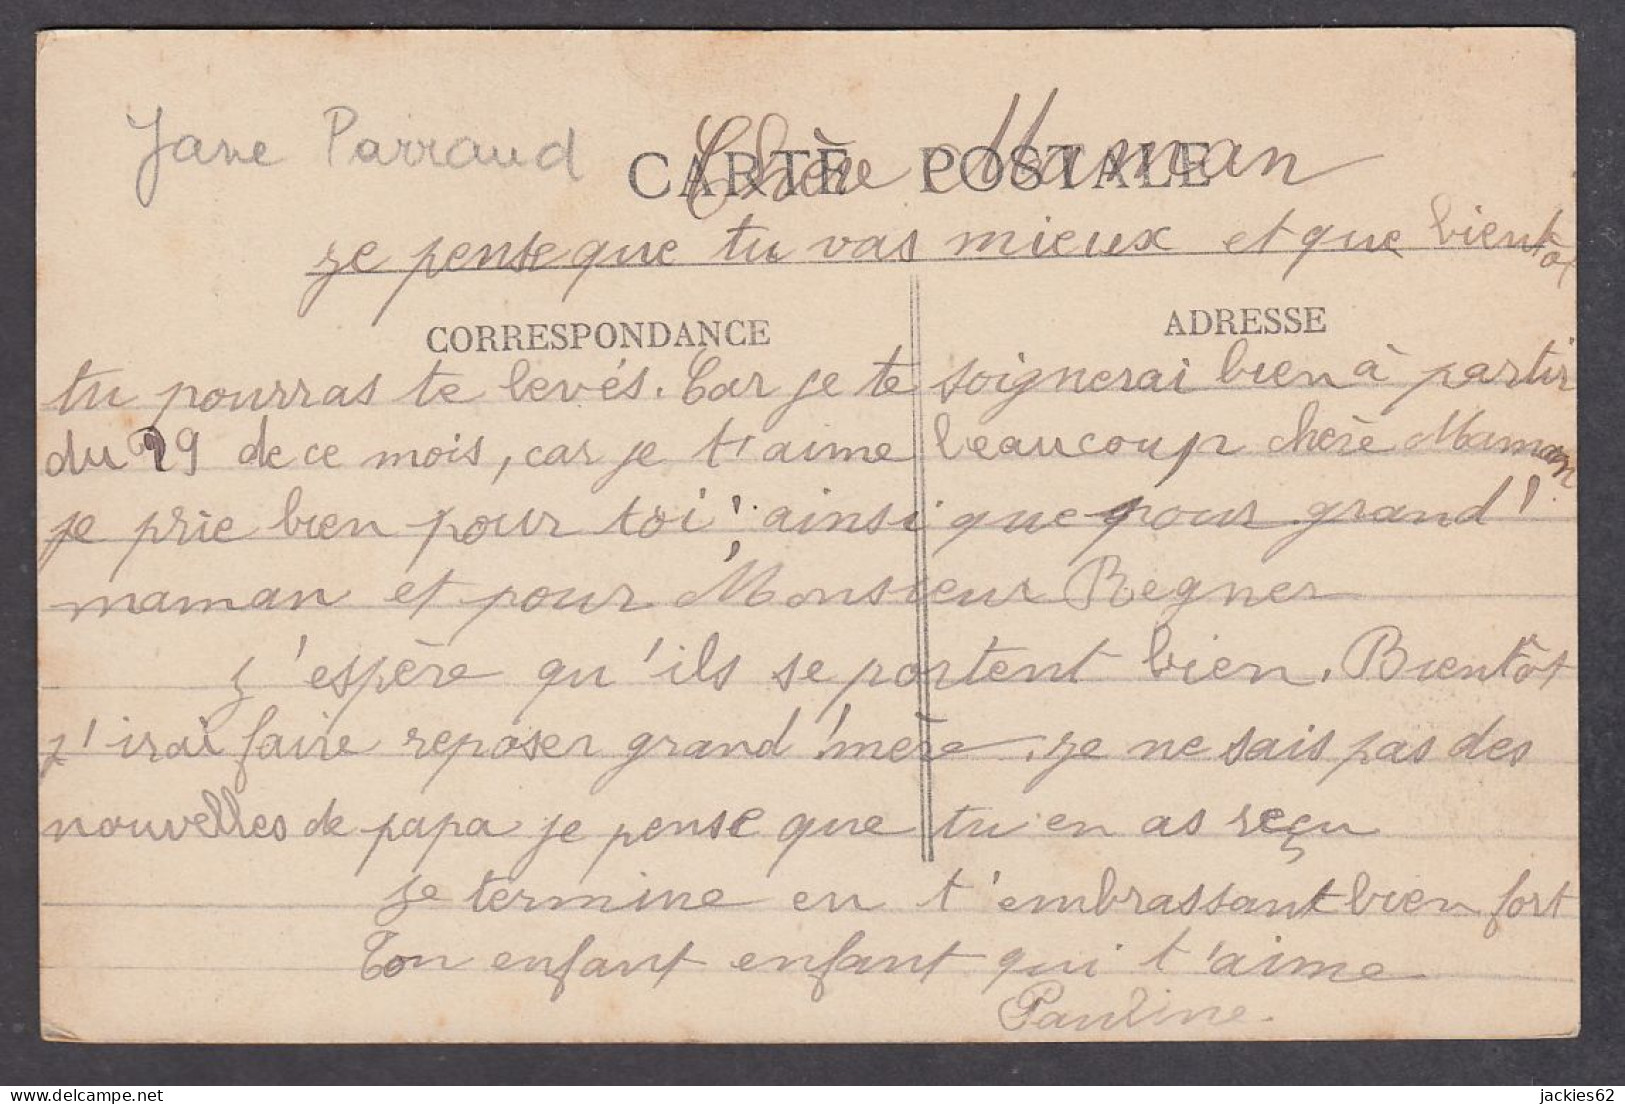 Jane Parraud
CARTE POSTALE
Chère Maman
je pense que tu vas mieux et que bientôt
CORRESPONDANCE
ADRESSE
tu pourras te levés. Car je te soignerai bien à partir
du 29 de ce mois, car je t'aime beaucoup chère Maman
je prie bien pour toi! ainsi que pour grand'
maman et pour Monsieur Regner
j'espère qu'ils se portent bien. Bientôt
j'irai faire reposer grand'mère. je ne sais pas des
nouvelles de papa je pense que tu en as reçu
je termine en t'embrassant bien fort
Ton enfant enfant qui t'aime
Pauline.
jackies62